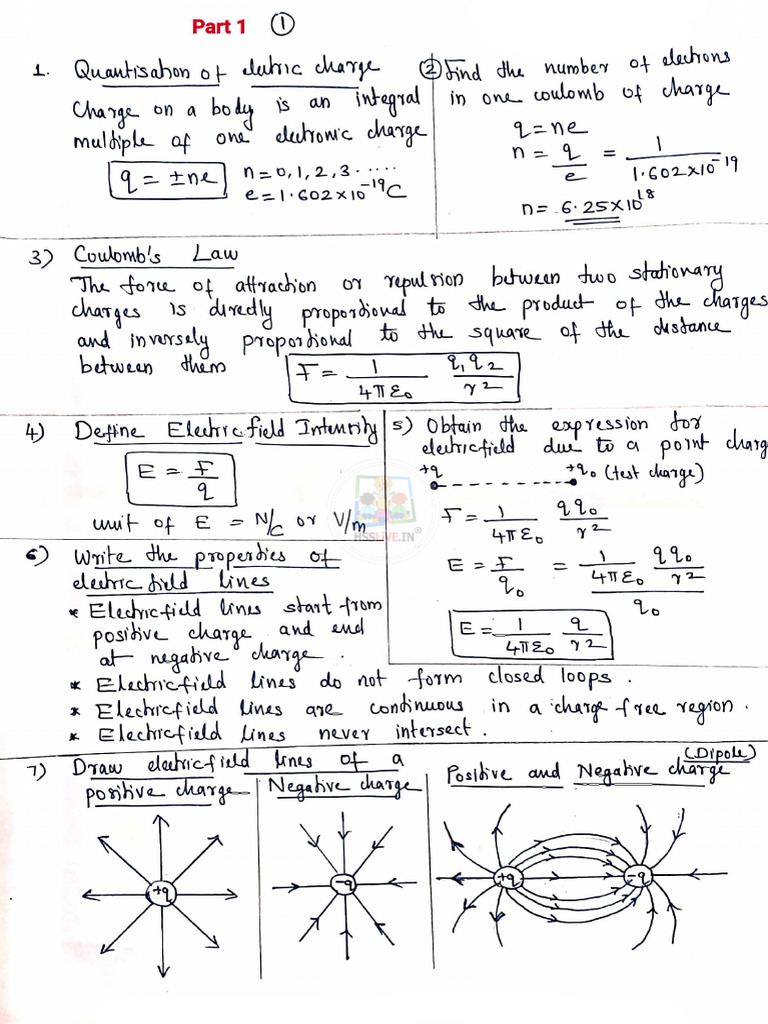 Part 1 ①
1. Quantisation of eletric charge
Charge on a body is an integral
multiple of one electronic charge
q = ±ne n = 0, 1, 2, 3 .....
e = 1.602×10⁻¹⁹C
② Find the number of electrons
in one coulomb of charge
q = ne
n = q/e = 1/1.602×10⁻¹⁹
n = 6.25×10¹⁸
3) Coulomb's Law
The force of attraction or repulsion between two stationary
charges is directly proportional to the product of the charges
and inversely proportional to the square of the distance
between them F = 1/4πε₀ q₁q₂/r²
4) Define Electric field Intensity
E = F/q
unit of E = N/C or V/m
5) Obtain the expression for
electricfield due to a point charg
+q +q₀ (test charge)
F = 1/4πε₀ qq₀/r²
E = F/q₀ = 1/4πε₀ qq₀/r² / q₀
E = 1/4πε₀ q/r²
6) Write the properties of
electric field lines
* Electricfield lines start from
positive charge and end
at negative charge .
* Electricfield lines do not form closed loops .
* Electricfield lines are continuous in a charge free region .
* Electricfield lines never intersect .
HSSLIVE.IN®
7) Draw electricfield lines of a
positive charge
Negative charge
Positive and Negative charge (Dipole)
+q
-q
+q -q